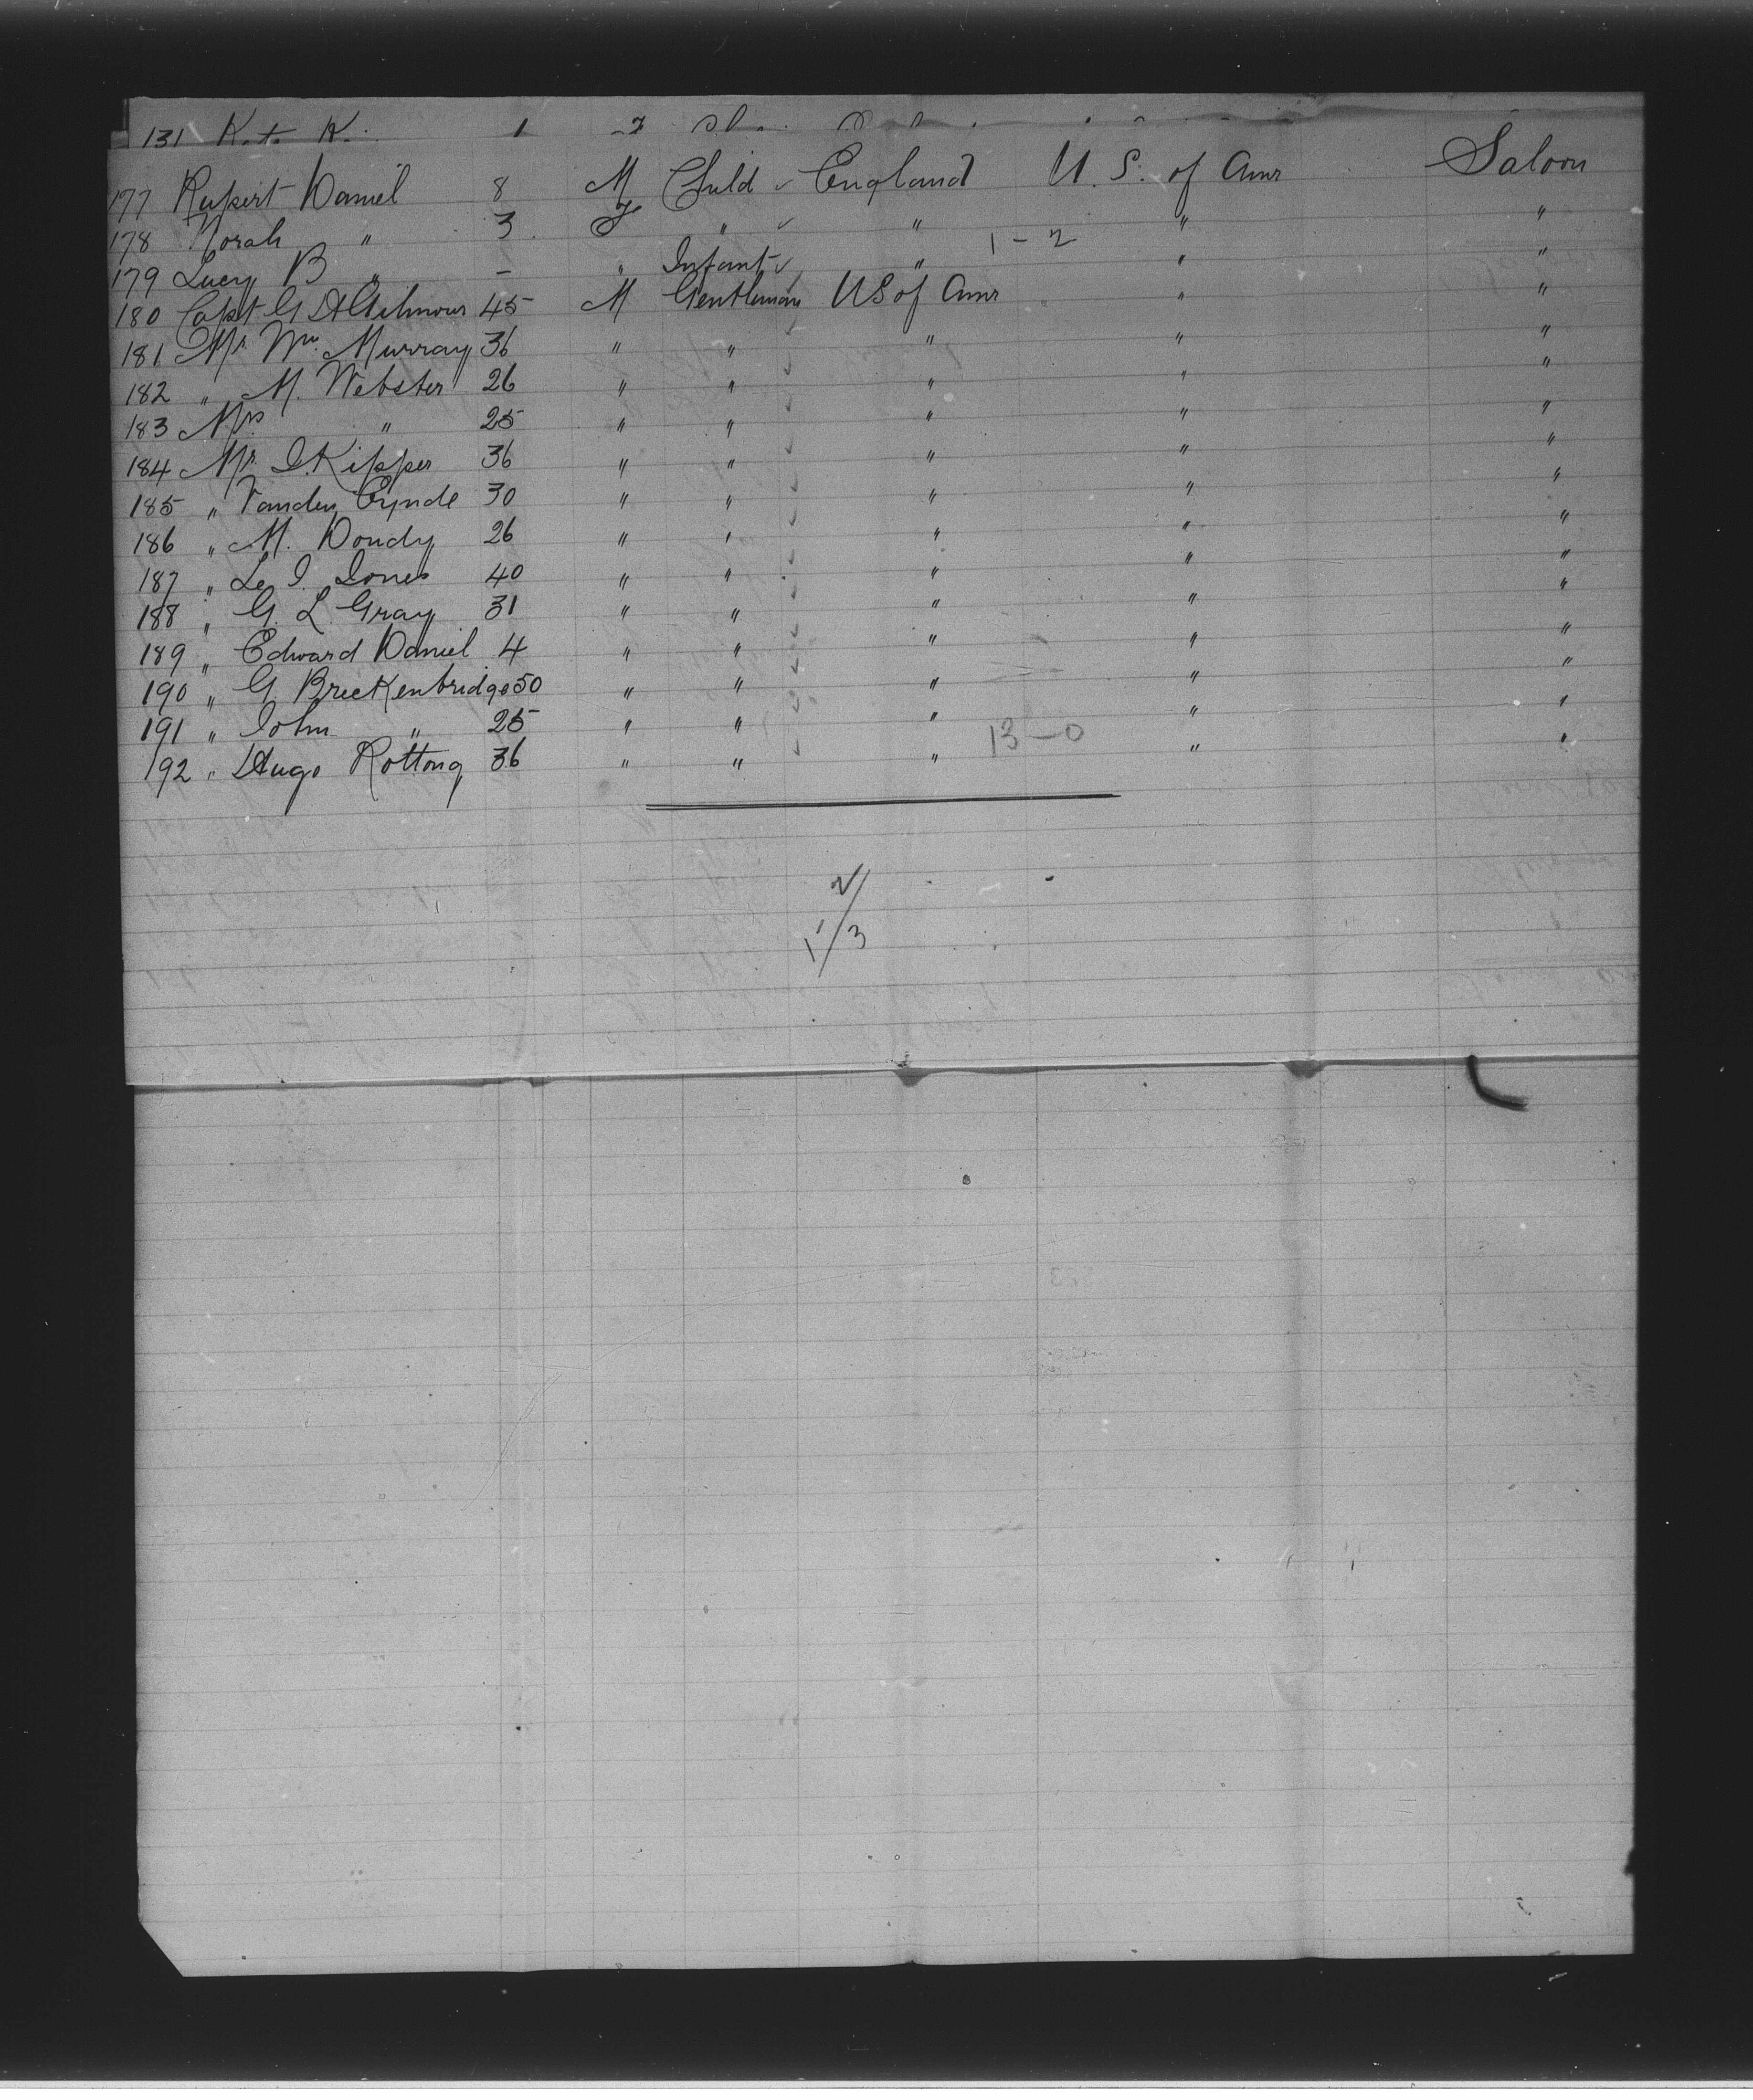 131 Kate K. 1 F
177 Rupert Daniel 8 M Child ✓ England U. S. of Amr Saloon
178 Norah " 3 F " ✓ " " "
179 Lucy B " - " Infant ✓ " 1 - 2 " "
180 Capt G A Gilmour 45 M Gentleman US of Amr " "
181 Mr. Wm. Murray 36 " " ✓ " " "
182 " M. Webster 26 " " ✓ " " "
183 Mrs " 25 " " ✓ " " "
184 Mr. I. Kipper 36 " " ✓ " " "
185 " Vanden Eynde 30 " " ✓ " " "
186 " M. Doudy 26 " " ✓ " " "
187 " Le I. Jones 40 " " ✓ " " "
188 " G. L. Gray 31 " " ✓ " " "
189 " Edward Daniel 4 " " ✓ " " "
190 " G. Breckenbridge 50 " " ✓ " " "
191 " John " 25 " " ✓ " 13 - 0 " "
192 " Hugo Rottong 36 " " ✓ " " "
2/
1/3